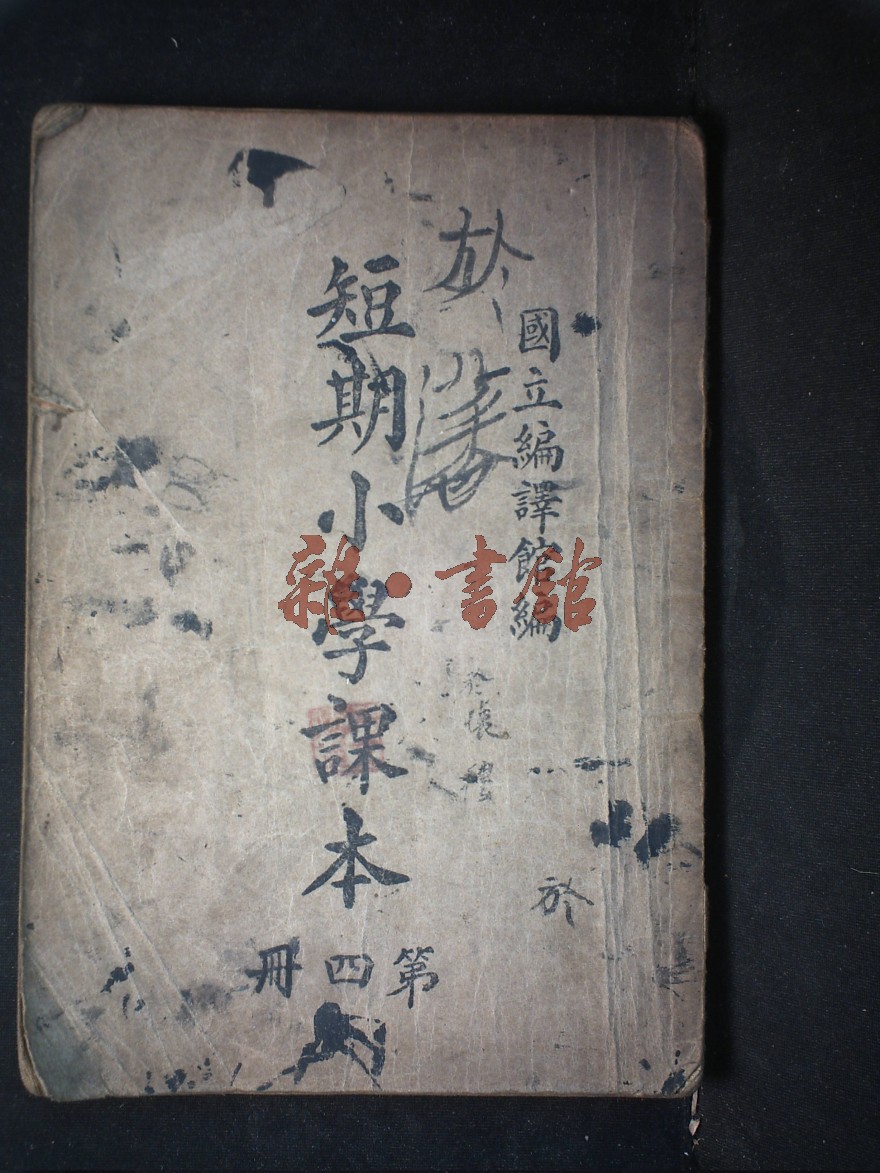 國立編譯館編
於
短期小學課本
第四冊
雜·書館
於